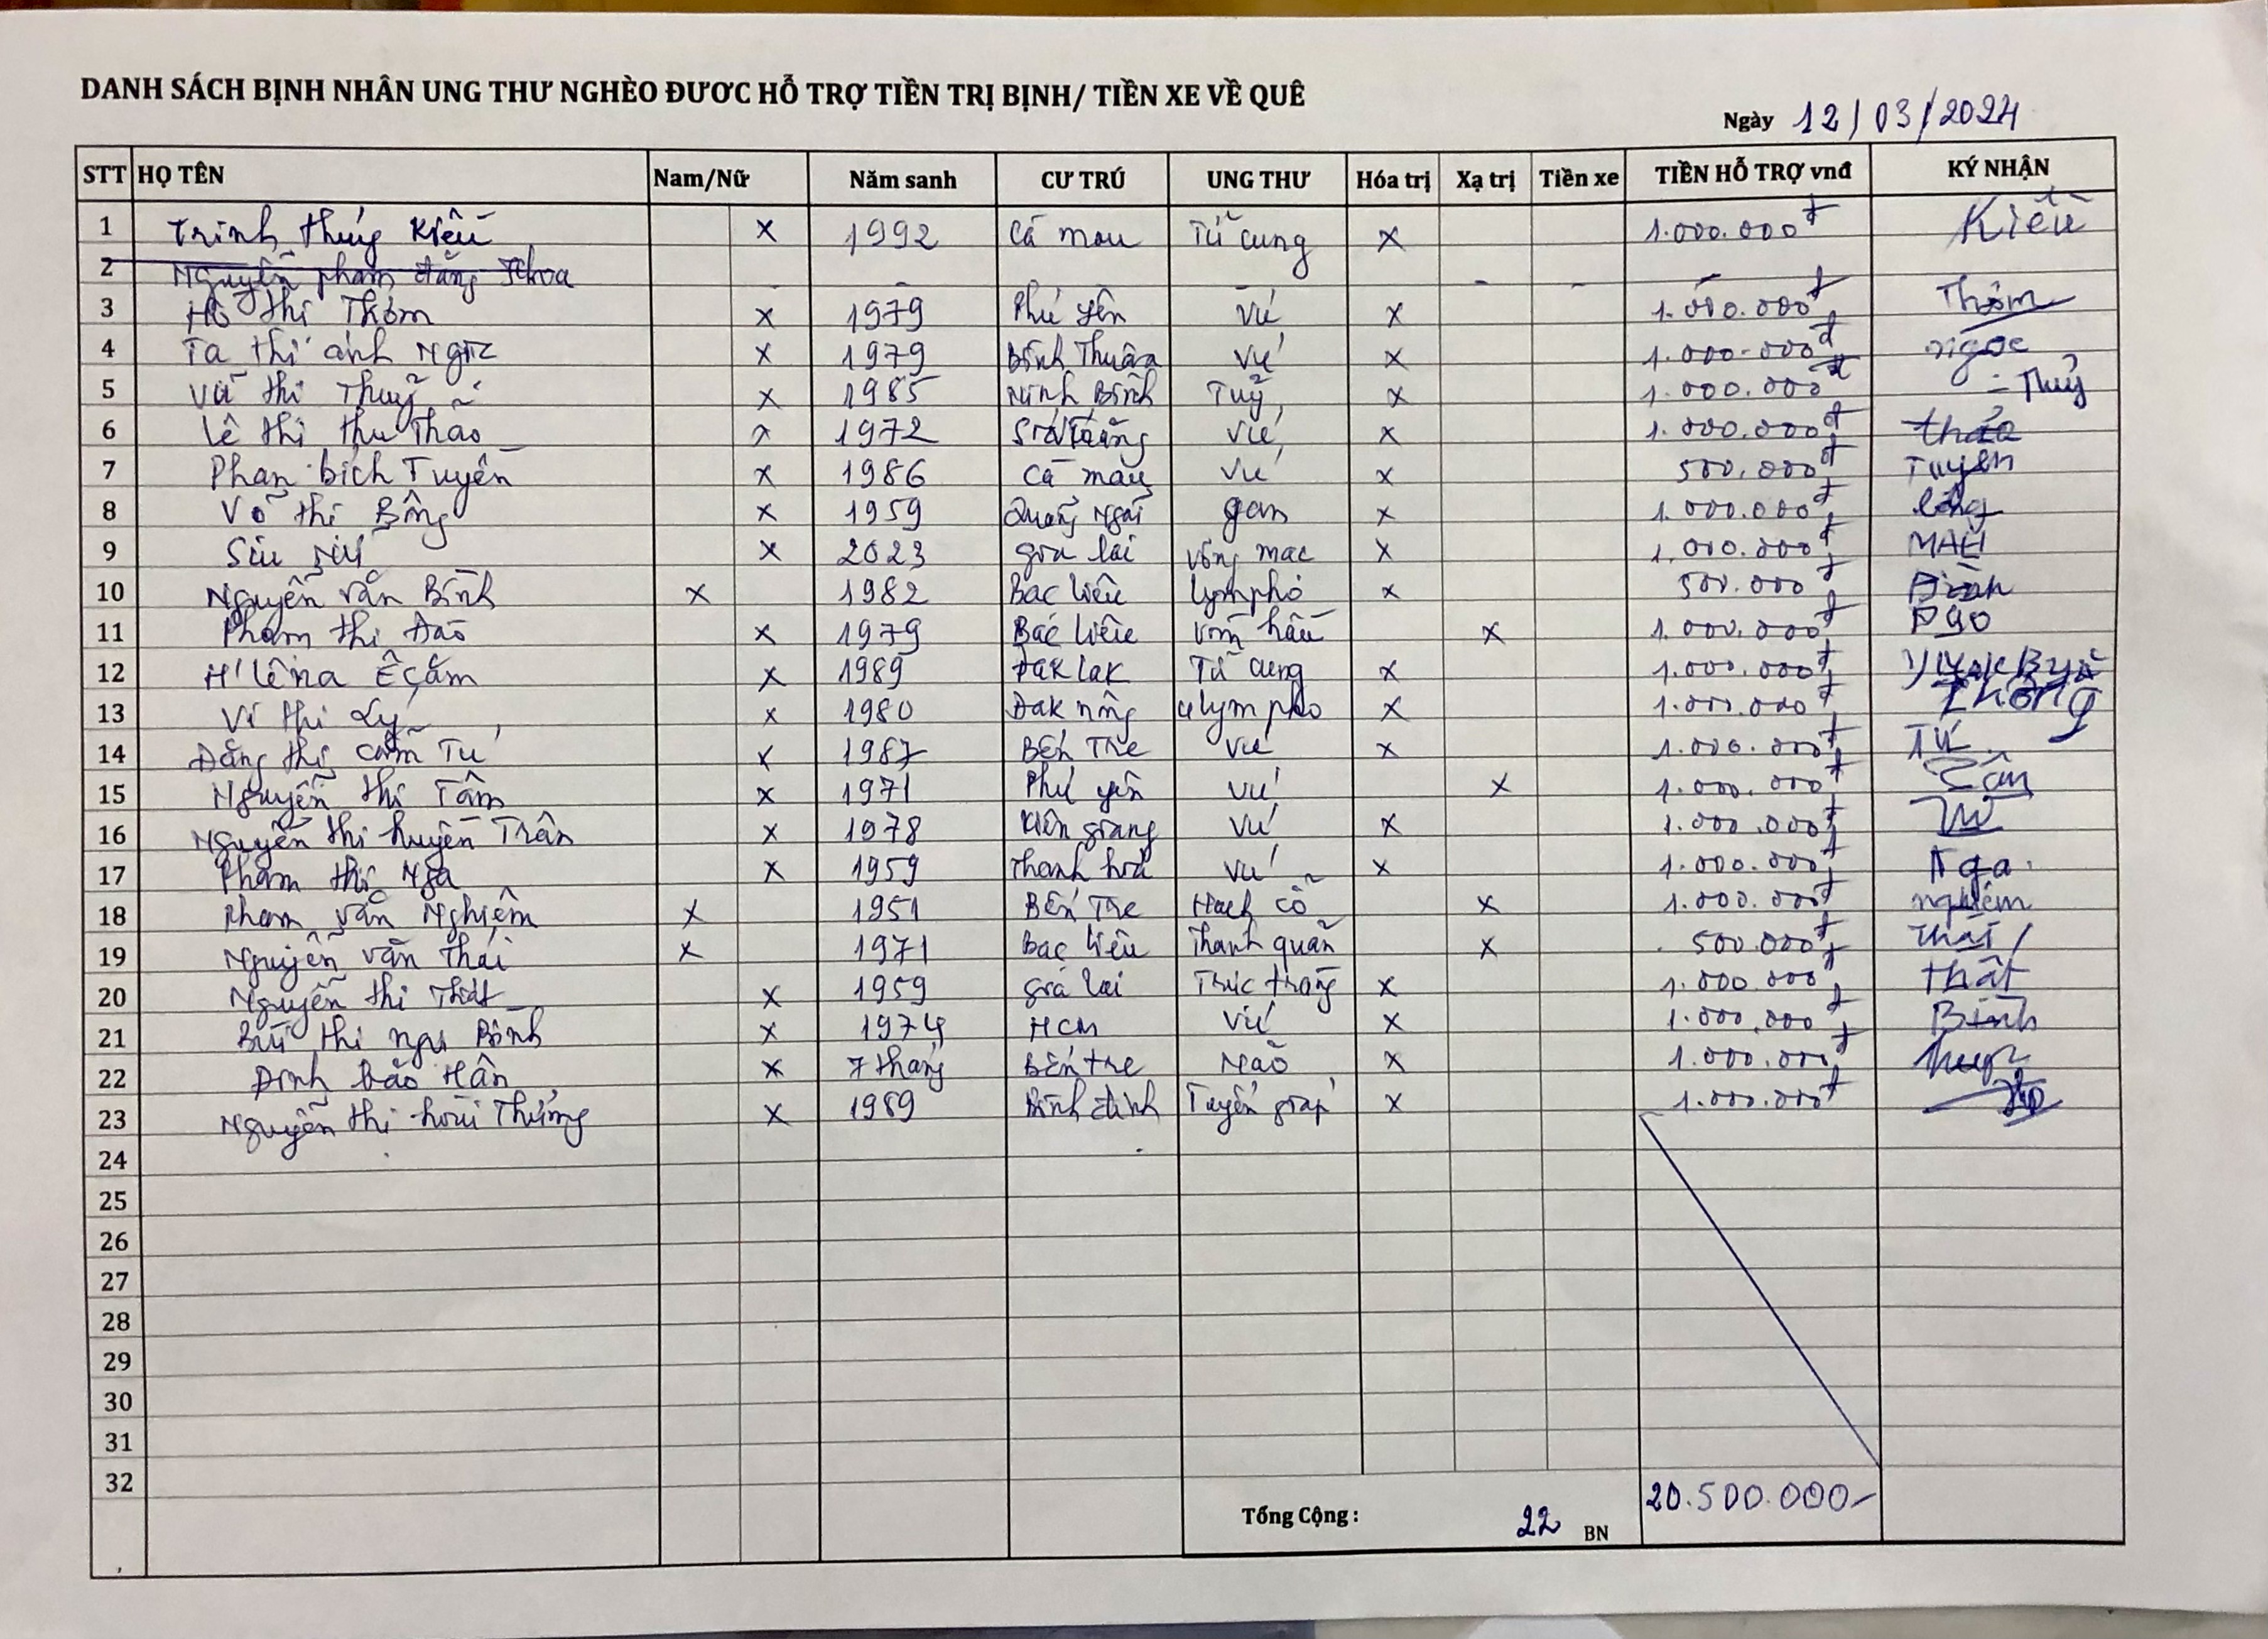 DANH SÁCH BỊNH NHÂN UNG THƯ NGHÈO ĐƯƠC HỖ TRỢ TIỀN TRỊ BỊNH/ TIỀN XE VỀ QUÊ
Ngày 12/03/2024
STT HỌ TÊN Nam/Nữ Năm sanh CƯ TRÚ UNG THƯ Hóa trị Xạ trị Tiền xe TIỀN HỖ TRỢ vnđ KÝ NHẬN
1 Trinh thúy Kiều x 1992 Cà mau Tử cung x 1.000.000đ Kiều
2 Nguyễn phạm đăng Khoa - - - - - -
3 Hồ thị Thơm x 1979 Phú yên Vú x 1.000.000đ Thơm
4 Tạ thị ánh Ngọc x 1979 Bình Thuận Vú x 1.000.000đ ngọc
5 Vũ thị Thuỷ x 1985 Ninh Bình Tuỷ x 1.000.000đ Thuỷ
6 Lê thị thu Thảo x 1972 Sóc Trăng Vú x 1.000.000đ thảo
7 Phan bích Tuyền x 1986 Cà mau Vú x 500.000đ Tuyền
8 Võ thị Bông x 1959 Quảng Ngãi gan x 1.000.000đ bông
9 Siu x 2023 gia lai võng mạc x 1.000.000đ
10 Nguyễn văn Bình x 1982 Bạc liêu lympho x 500.000đ Bình
11 Phạm thị Đào x 1979 Bạc liêu vòm hầu x 1.000.000đ
12 H'Lêna Êcăm x 1989 Đak Lak Tử cung x 1.000.000đ
13 Vi thị Lý x 1980 Đak nông u lympho x 1.000.000đ Thông
14 Đặng thị cẩm Tú x 1987 BẾn Tre Vú x 1.000.000đ Tú
15 Nguyễn thị Tâm x 1971 Phú yên Vú x 1.000.000đ Tâm
16 Nguyễn thị huyền Trân x 1978 Kiên giang Vú x 1.000.000đ
17 Phạm thị Nga x 1959 Thanh hoá Vú x 1.000.000đ Nga
18 Phạm văn Nghiệm x 1951 BẾn Tre Hạch cổ x 1.000.000đ nghiệm
19 Nguyễn văn Thái x 1971 Bạc liêu Thanh quản x 500.000đ Thái
20 Nguyễn thị Thất x 1959 gia lai Trực tràng x 1.000.000đ thất
21 Bùi thị ngư Bình x 1974 HCM Vú x 1.000.000đ Bình
22 Đinh bảo Hân x 7 tháng BẾn tre Não x 1.000.000đ
23 Nguyễn thị hoài Thương x 1989 Bình định Tuyến giáp x 1.000.000đ
24
25
26
27
28
29
30
31
32
Tổng Cộng : 22 BN 20.500.000